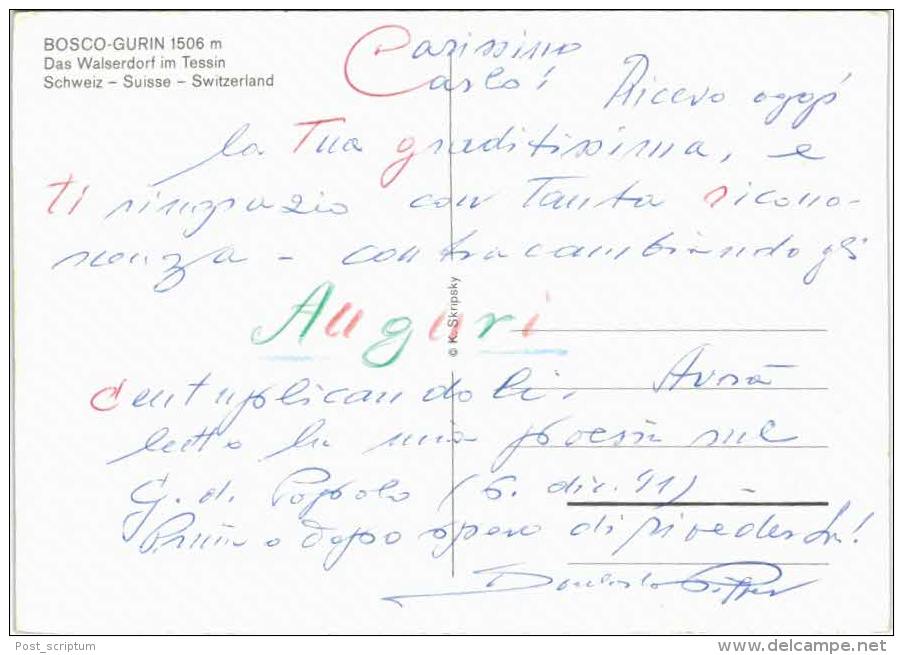 BOSCO-GURIN 1506 m
Das Walserdorf im Tessin
Schweiz – Suisse – Switzerland
Carissimo
Carlo! Ricevo oggi
la Tua graditissima, e
Ti ringrazio con Tanta ricono-
scenza - contracambiando gli
Auguri
centuplicandoli. Avrà
letto la mia poesia sul
G. d. Popolo (6. dic. '91) -
Prima o dopo spero di rivederLa!
© K. Skripsky
Post_scriptum
delcampe.net